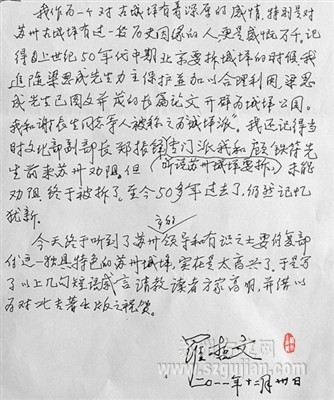 我作为一个对古城墙有着深厚的感情,特别是对
苏州古城墙有过一段历史因缘的人,更是感慨万千。记
得自上世纪50年代中期北京要拆城墙的时候我
追随梁思成先生力主保护并加以合理利用,梁思
成先生已因文并茂的长篇论文开辟为城墙公园。
我和谢辰生同志等人被称之为城墙派”。我还记得当
时文化部副部长郑振铎专门派我和顾铁符先
生前来苏州劝阻。但(听说苏州城墙要拆)未能
劝阻终于被拆了。至今50多年过去了,仍然记忆
犹新。
今天终于听到了苏州市的领导和有识之士要修复部
份这一独具特色的苏州城墙,实在是太高兴了。于是写
了以上几句短语感言请教读者方家高明,并借以
为对此书出版之祝贺。
罗哲文
二〇一一年十二月卅日
www.szqujian.com